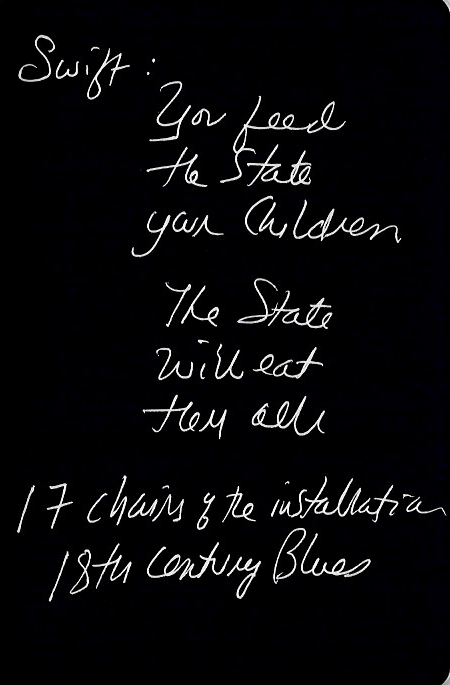 Swift:
You feed
the State
your Children
The State
will eat
them all
17 chairs of the installation
18th Century Blues